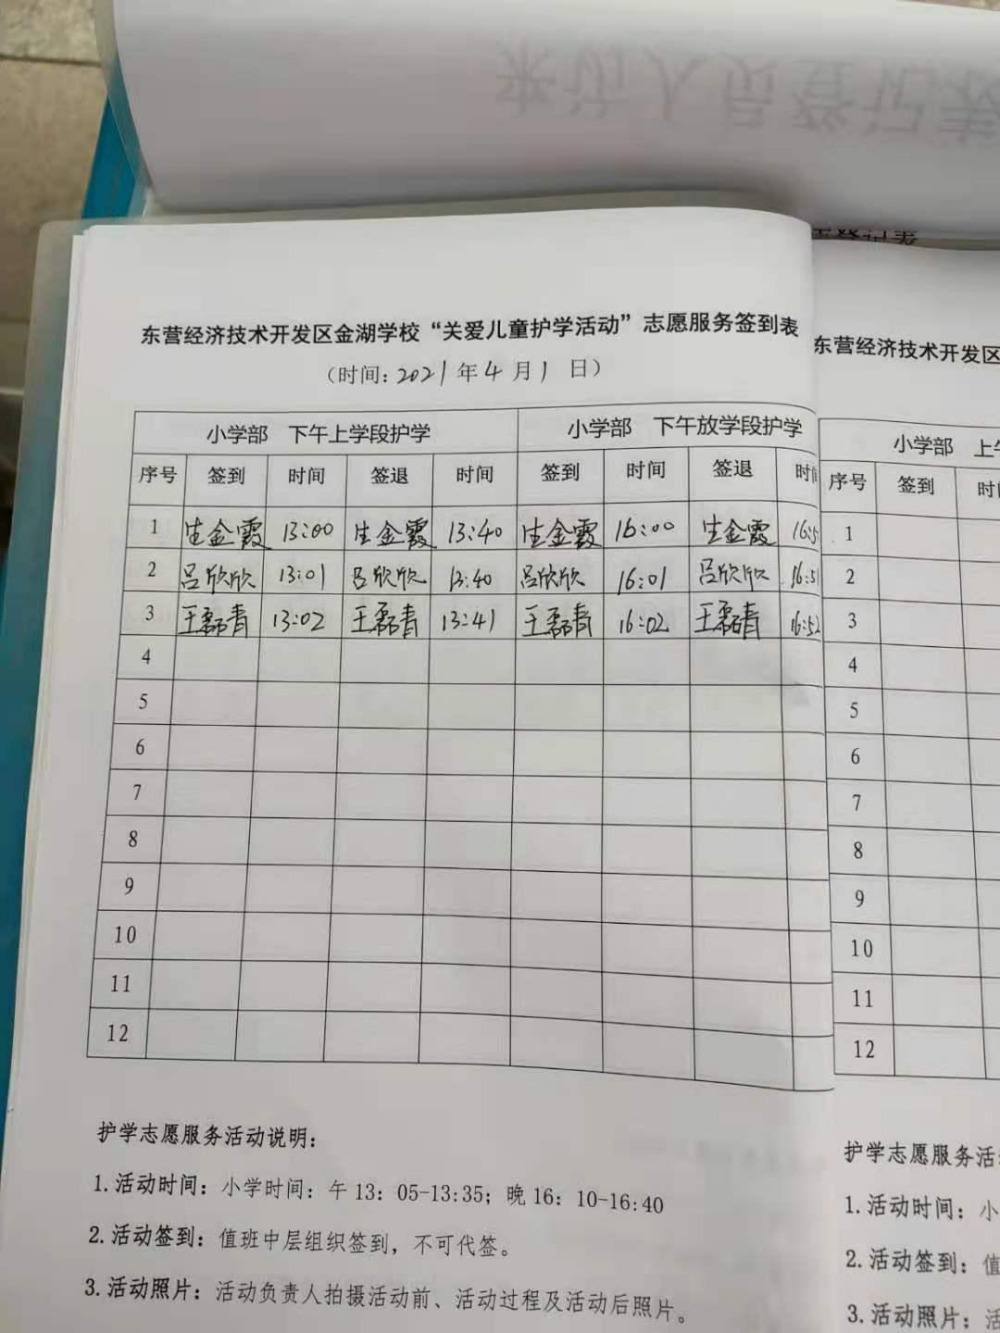 来访人员登记表
登记表
东营经济技术开发区金湖学校“关爱儿童护学活动”志愿服务签到表
（时间：2021年4月1日）
小学部 下午上学段护学 小学部 下午放学段护学
序号 签到 时间 签退 时间 签到 时间 签退 时间
1 生金霞 13:00 生金霞 13:40 生金霞 16:00 生金霞 16:5
2 吕欣欣 13:01 吕欣欣 13:40 吕欣欣 16:01 吕欣欣 16:51
3 王磊青 13:02 王磊青 13:41 王磊青 16:02 王磊青 16:52
4
5
6
7
8
9
10
11
12
护学志愿服务活动说明：
1.活动时间：小学时间：午13：05-13:35；晚16：10-16:40
2.活动签到：值班中层组织签到，不可代签。
3.活动照片：活动负责人拍摄活动前、活动过程及活动后照片。
东营经济技术开发区
小学部 上午
序号 签到 时间
1
2
3
4
5
6
7
8
9
10
11
12
护学志愿服务活
1.活动时间：小
2.活动签到：值
3.活动照片：活